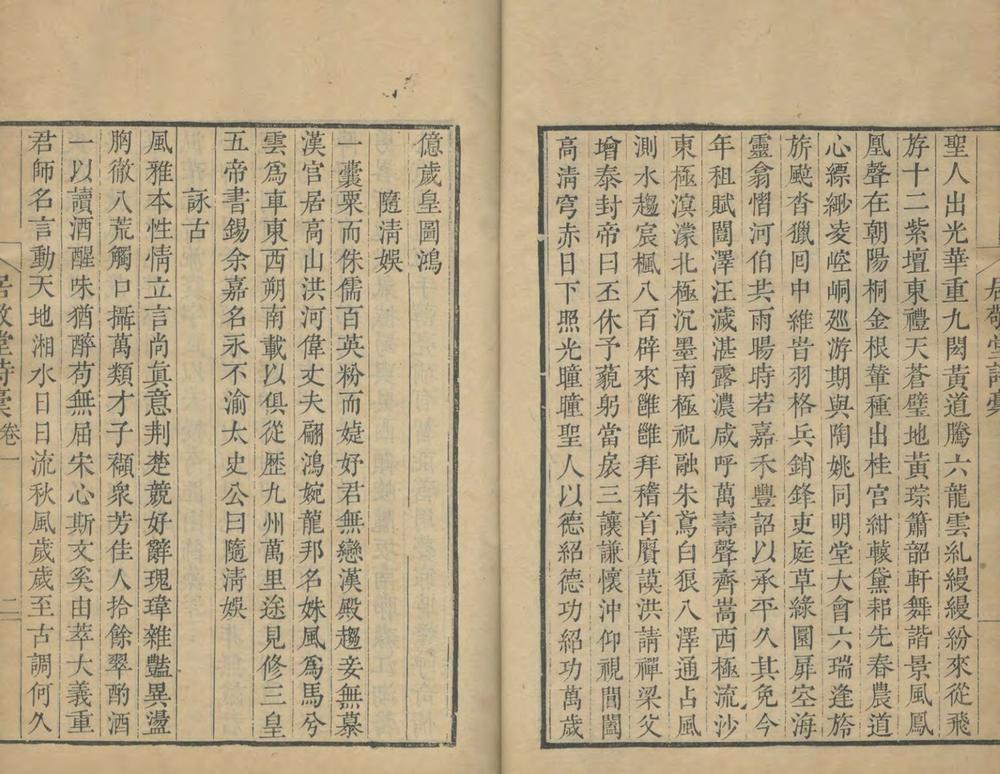 聖人出光華重九閎黃道騰六龍雲糺縵縵紛來從飛
斿十二紫壇東禮天蒼璧地黃琮簫韶軒舞諧景風鳳
凰聲在朝陽桐金根葦種出桂宮紺轅黛耜先春農道
心縹緲凌崆峒廵游期與陶姚同明堂大會六瑞逢旂
旂颴沓獵囘中維旹羽格兵銷鋒吏庭草綠圜屏空海
靈翕慴河伯共雨暘時若嘉禾豐詔以承平久其免今
年租賦闓澤汪濊湛露濃咸呼萬壽聲齊嵩西極流沙
東極溟濛北極沉墨南極祝融朱鳶白狼八澤通占風
測水趨宸楓八百辟來雝雝拜稽首賡謨洪請禪梁父
增泰封帝曰丕休予藐躬當扆三讓謙懷沖仰視閶闔
高淸穹赤日下照光曈曈聖人以德紹德功紹功萬歲
億歲皇圖鴻
隨淸娛
一囊粟而侏儒百英粉而婕妤君無戀漢殿趨妾無慕
漢官居高山洪河偉丈夫翩鴻婉龍邦名姝風爲馬兮
雲爲車東西朔南載以俱從歷九州萬里途見修三皇
五帝書錫余嘉名永不渝太史公曰隨淸娛
詠古
風雅本性情立言尚眞意荆楚競好辭瑰瑋雜豔異盪
胸徹八荒觸口攝萬類才子襭衆芳佳人拾餘翠酌酒
一以讀酒醒味猶醉苟無屈宋心斯文奚由萃大義重
君師名言動天地湘水日日流秋風歲歲至古調何久
居敬堂詩稾 卷一
二